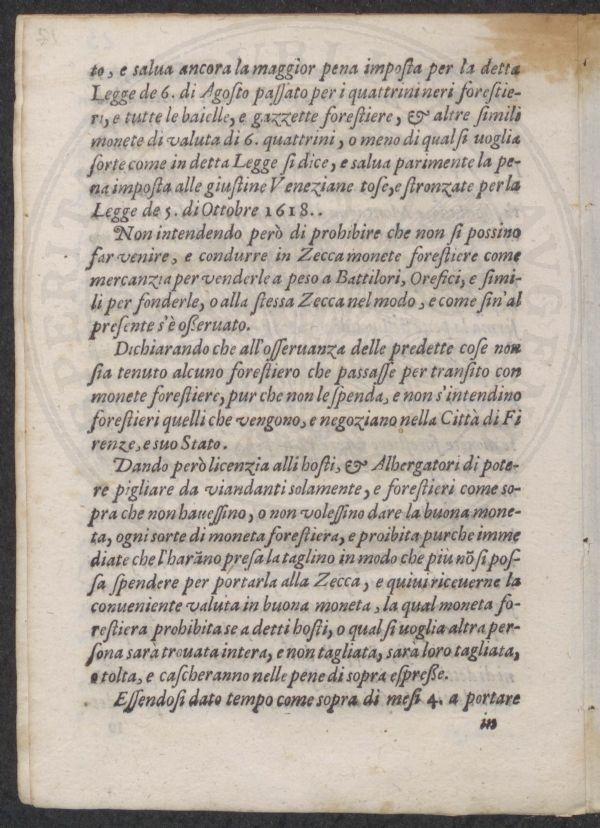 to, e salua ancora la maggior pena imposta per la detta
Legge de 6. di Agosto passato per i quattrini neri forestie-
ri, e tutte le baielle, e gazzette forestiere, & altre simili
monete di valuta di 6. quattrini, o meno di qual si uoglia
sorte come in detta Legge si dice, e salua parimente la pe-
na imposta alle giustine Veneziane tose, e stronzate per la
Legge de 5. di Ottobre 1618..
Non intendendo però di prohibire che non si possino
far venire, e condurre in Zecca monete forestiere come
mercanzia per venderle a peso a Battilori, Orefici, e simi-
li per fonderle, o alla stessa Zecca nel modo, e come sin'al
presente s'è osseruato.
Dichiarando che all'osseruanza delle predette cose non
sia tenuto alcuno forestiero che passasse per transito con
monete forestiere, pur che non le spenda, e non s'intendino
forestieri quelli che vengono, e negoziano nella Città di Fi
renze, e suo Stato.
Dando però licenzia alli hosti, & Albergatori di pote-
re pigliare da viandanti solamente, e forestieri come so-
pra che non hauessino, o non volessino dare la buona mone-
ta, ogni sorte di moneta forestiera, e proibita purche imme
diate che l'harãno presa la taglino in modo che più nõ si pos-
sa spendere per portarla alla Zecca, e quiui riceuerne la
conueniente valuta in buona moneta, la qual moneta fo-
restiera prohibita se a detti hosti, o qual si uoglia altra per-
sona sarà trouata intera, e non tagliata, sarà loro tagliata,
o tolta, e cascheranno nelle pene di sopra espresse.
Essendosi dato tempo come sopra di mesi 4. a portare
in